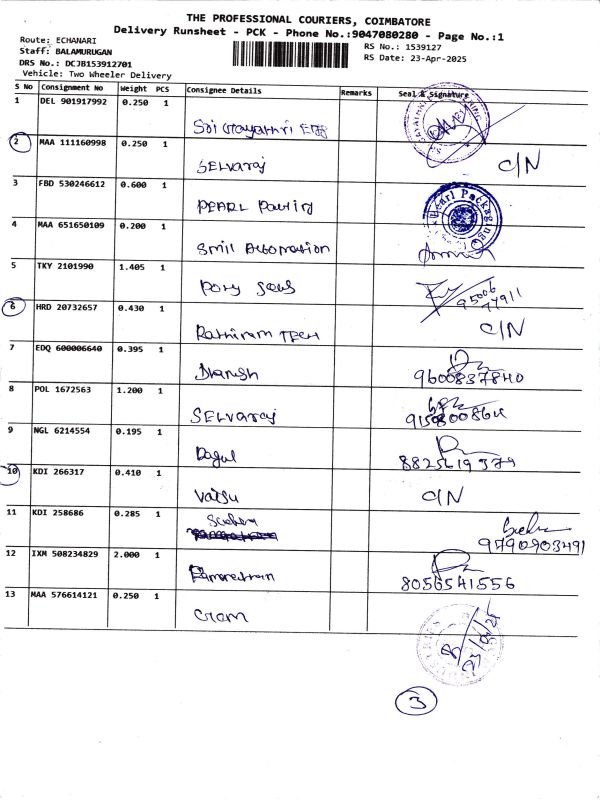 THE PROFESSIONAL COURIERS, COIMBATORE
Delivery Runsheet - PCK - Phone No.:9047080280 - Page No.:1
Route: ECHANARI
RS No.: 1539127
Staff: BALAMURUGAN
RS Date: 23-Apr-2025
DRS No.: DCJB153912701
Vehicle: Two Wheeler Delivery
S No Consignment No Weight PCS Consignee Details Remarks Seal & Signature
1 DEL 901917992 0.250 1
Sri Gayathri
2 MAA 111160998 0.250 1
SELVaraj C/N
3 FBD 530246612 0.600 1
PEARL Pearl Packaging
4 MAA 651650109 0.200 1
Smil Automation
5 TKY 2101990 1.405 1
95006
77911
6 HRD 20732657 0.430 1
TECH C/N
7 EDQ 600006640 0.395 1
Dhanush 9600837840
8 POL 1672563 1.200 1
SELVaraj
9 NGL 6214554 0.195 1
8825619379
10 KDI 266317 0.410 1
C/N
11 KDI 258686 0.285 1
9790903491
12 IXM 508234829 2.000 1
8056541556
13 MAA 576614121 0.250 1
23/04/25
3